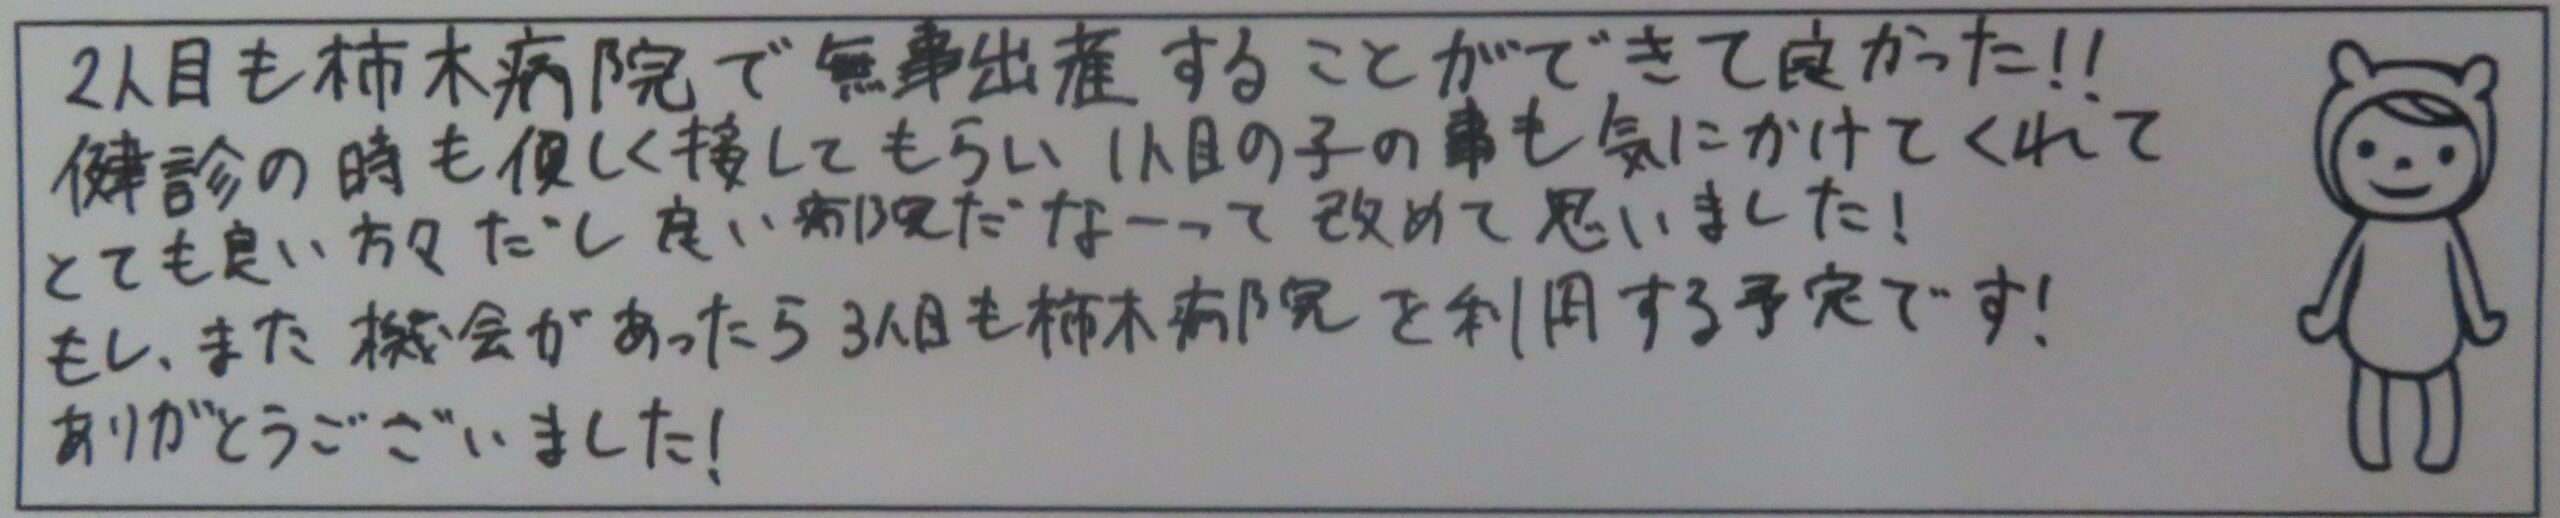 2人目も柿木病院で無事出産することができて良かった!!
健診の時も優しく接してもらい1人目の子の事も気にかけてくれて
とても良い方々だし良い病院だなーって改めて思いました!
もし、また機会があったら3人目も柿木病院を利用する予定です!
ありがとうございました!